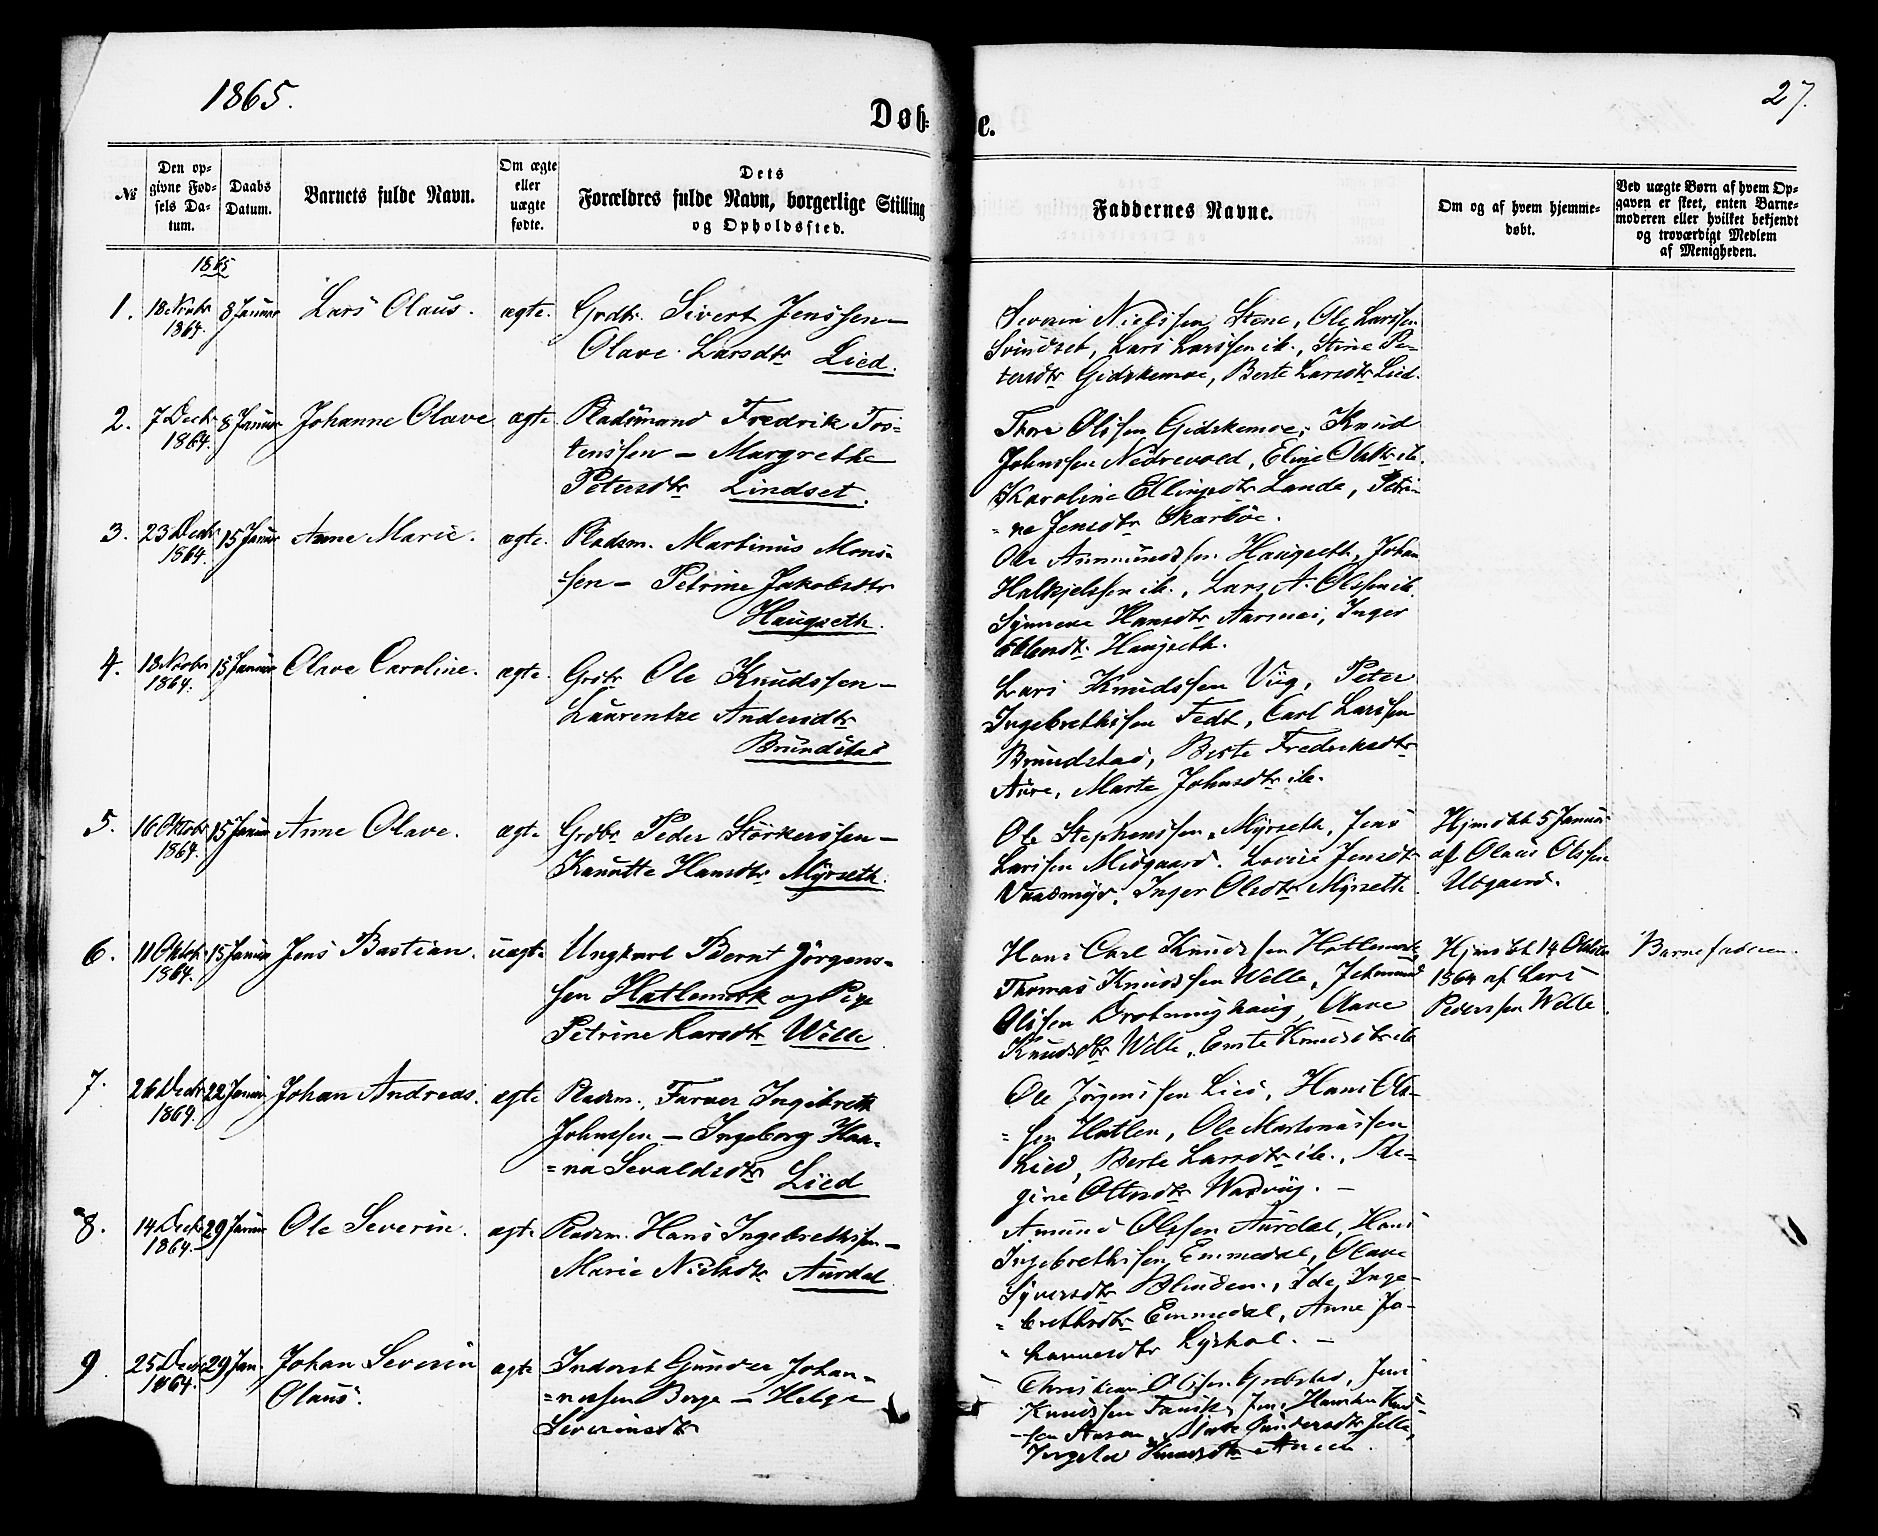 1865.
27.
Døb=
te.
№
Den op-
givne Fød-
sels Da-
tum.
Daabs
Datum.
Barnets fulde Navn.
Om ægte
eller
uægte
fødte.
Dets
Forældres fulde Navn, borgerlige Stilling
og Opholdssted.
Faddernes Navne.
Om og af hvem hjemme-
døbt.
Ved uægte Børn af hvem Op-
gaven er skeet, enten Barne-
moderen eller hvilket bekjendt
og troværdigt Medlem
af Menigheden.
1865
1. 18 Novbr 1864. 8 Januar Lars Olaus. ægte.
Grdbr. Sivert Jenssen –
Olave Larsdtr Lied.
Severin Nielssen Stene, Ole Larssen
Svindset, Lars Larssen ib., Stine Pe-
tersdtr Gidskemoe, Berte Larsdtr Lied.
2. 7 Decbr 1864. 8 Januar Johanne Olave ægte
Pladsmand Fredrik Tos-
tenssen – Margrethe
Petersdtr Lindset.
Thore Olssen Gidskemoe, Knud
Johnssen Nedrevold, Eline Olsdtr ib.
Karoline Ellingsdtr Lande, Petri-
=ne Jensdtr Skarbøe.
3. 23 Decbr 1864. 15 Januar Anne Marie. ægte.
Pladsm. Martinus Mons-
=sen – Petrine Jakobsdtr
Haugseth.
Ole Ammundssen Haugseth, Johan
Halkjelssen ib., Lars A. Olssen ib.
Synneve Hansdtr Aarsnei, Inger
Haugseth.
4. 18 Novbr 1864. 15 Januar Olave Caroline. ægte.
Grdbr Ole Knudssen –
Laurentze Andersdtr
Brundstad
Lars Knudssen Viig, Peter
Ingebrethssen Fedt, Carl Larssen
Brundstad, Berte Fredriksdtr
Aure, Marte Johnsdtr ib.
5. 16 Oktobr 1864. 15 Januar Anne Olave. ægte
Grdbr Peder Størkerssen –
Kanutte Hansdtr Myrseth.
Ole Stephenssen Myrseth, Jens
Larssen Midgaard. Lovise Jensdtr
Vaadmyr, Inger Olsdtr Myrseth
Hjmdbt 5 Januar
af Olaus Olssen
Utgaard.
6. 11 Oktob. 1864. 15 Januar Jens Bastian. uægte
Ungkarl Bernt Jørgens-
sen Hatlemark og Pige
Petrine Larsdtr Welle.
Hans Carl Knudssen Hatlemark,
Thomas Knudssen Welle,
Olssen Dronninghaug, Olave
Knudsdtr Welle, Knudsdtr ib
Hjmdbt 14 Oktober
1864 af Lars
Pederssen Welle.
Barnefaderen.
7. 26 Decbr 1864. 22 Januar Johan Andreas. ægte
Pladsm., Farver Ingebreth
Johnssen – Ingeborg Han-
=na Sevaldsdtr Lied
Ole Jørgenssen Lied, Hans Ols-
=sen Hatlen, Ole Martinussen
Lied, Berte Larsdtr ib., Re-
gine Ottersdtr Wadviig. –
8. 14 Decbr 1864. 29 Januar Ole Severin. ægte
Pladsm. Hans Ingebrethssen –
Marie Nielsdtr Aurdal.
Amund Olssen Aurdal, Hans
Ingebrethssen Emmedal, Olave
Syversdtr Blinden., Ide Inge-
=brethsdtr Emmedal, Anne Jo-
=hannesdtr Lyshol. –
9. 25 Decbr 1864. 29 Jan. Johan Severin
Olaus. ægte
Inderst Gunder Johan-
=nessen Berge – Helge
Severinsdtr
Christian Olssen Grebstad, Jens
Knudssen, Jens Hansen Knud-
-sen, Marte Gundersdtr
Knudsdtr